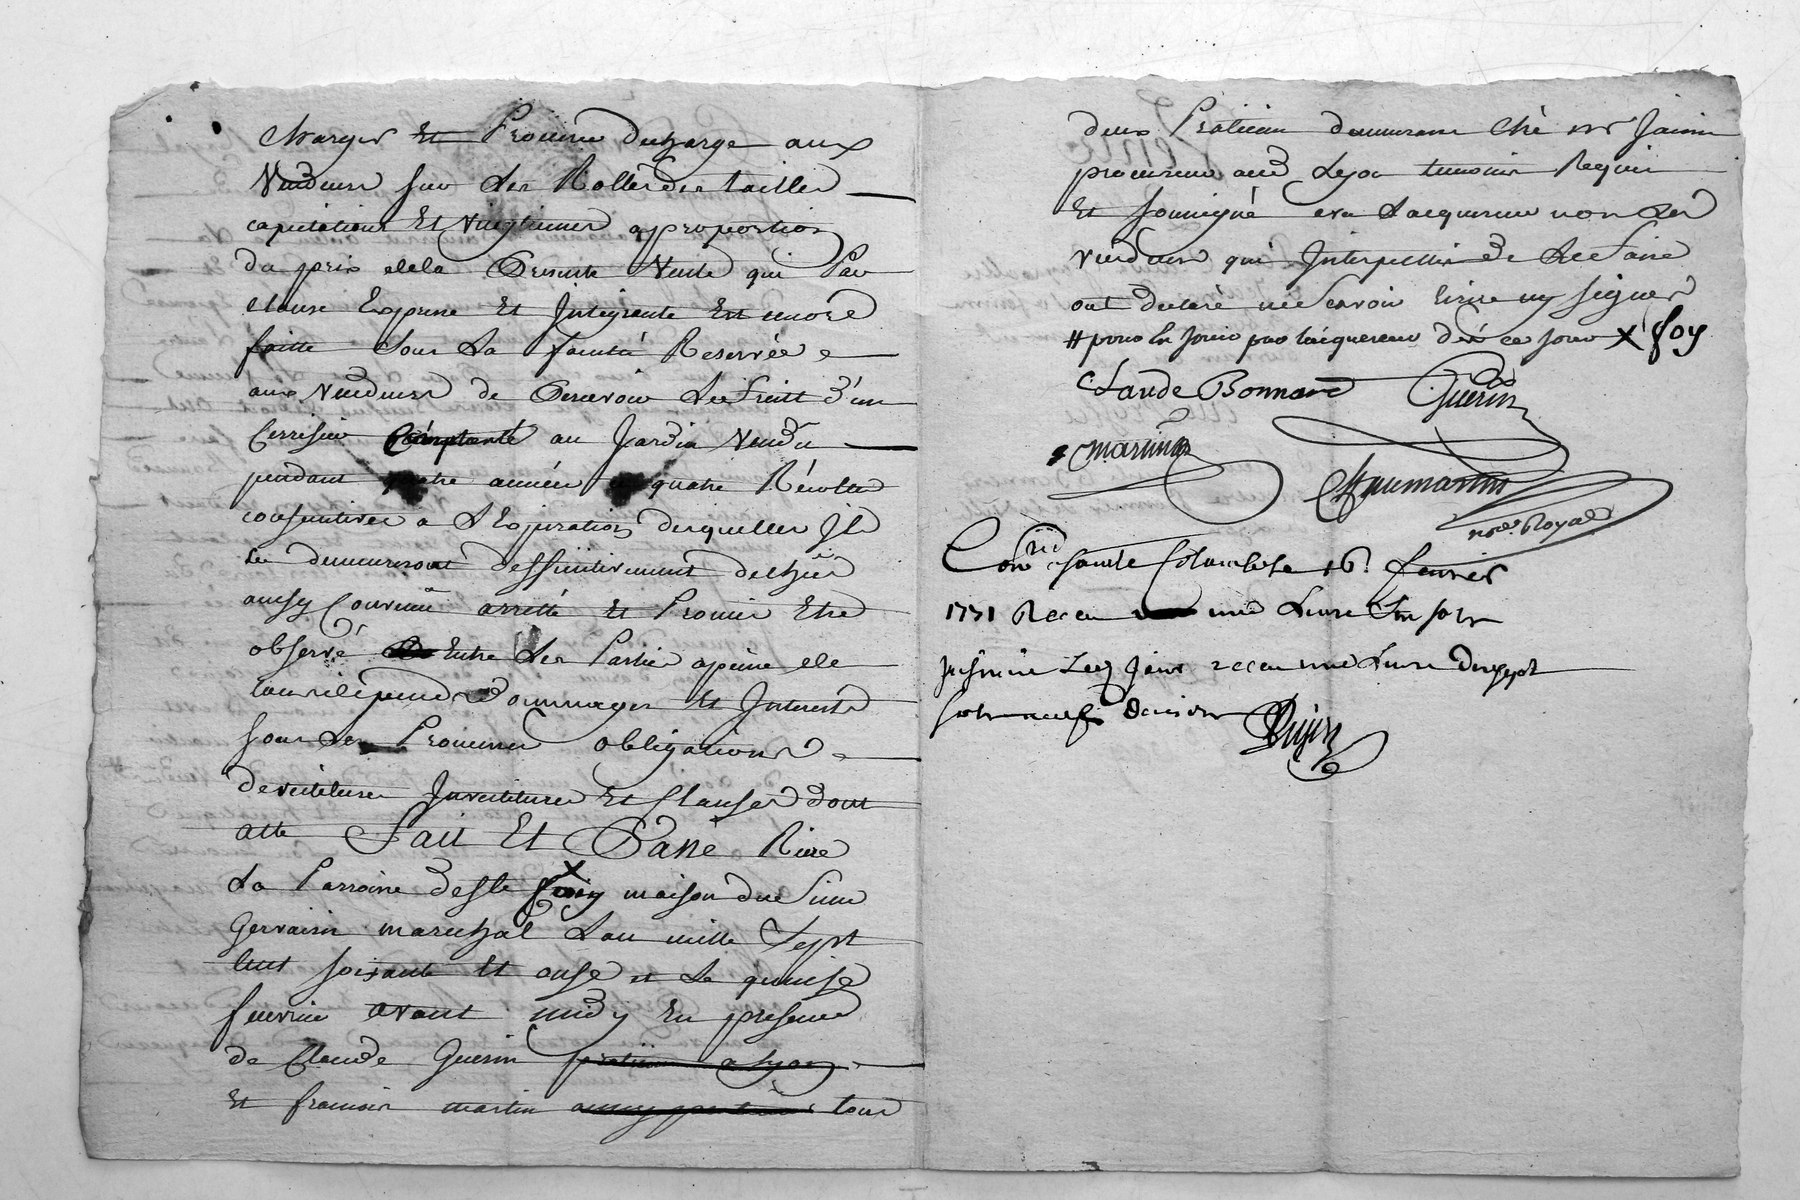 charger et Promis decharge aux
Vendeurs sur les Rolles des tailles
capitations et vingtiemes approportion
du prix de la Presente Vente qui Par
clause Expresse et Integrante Est encore
faitte sous la faculté Reservée
aux Vendeurs de Percevoir les fruits d'un
Cerisier Complanté au Jardin Vendu
pendant quatre années quatre Récoltes
consecutives a l'Expiration desquelles Ils
deffinitivement
aussy Convenu arretté et Promis Etre
observé Entre les Parties apeine de
tous depens Dommages et Interests
sous les Promesses obligations
devetitures Investitures et Clauses dont
atte Fait Et Passé Riere
la Parroisse de Ste foy maison du Sieur
Gervais marechal Lan mille Sept
Cent soixante et onze et le quinze
fevrier avant midy En presence
de Claude Guerin praticien a Lyon
Et francois martin aussy praticien tous
deux Praticiens demeurans Ché mr Janin
procureur aud Lyon temoins Requis
Et soussignés avec l'acquereur non les
vendeurs qui Interpellés de Le faire
ont declaré ne Scavoir Ecrire ny signer
# pour En jouir par l'acquereur dés ce jour X foy
Claude Bonnard Guerin
Martin
Chaumartin
nore Royal
Conllé Sainte Colombe le 16 fevrier
1771 Recu une Livre Six sols
recu une Livre dix sept
sols neuf deniers